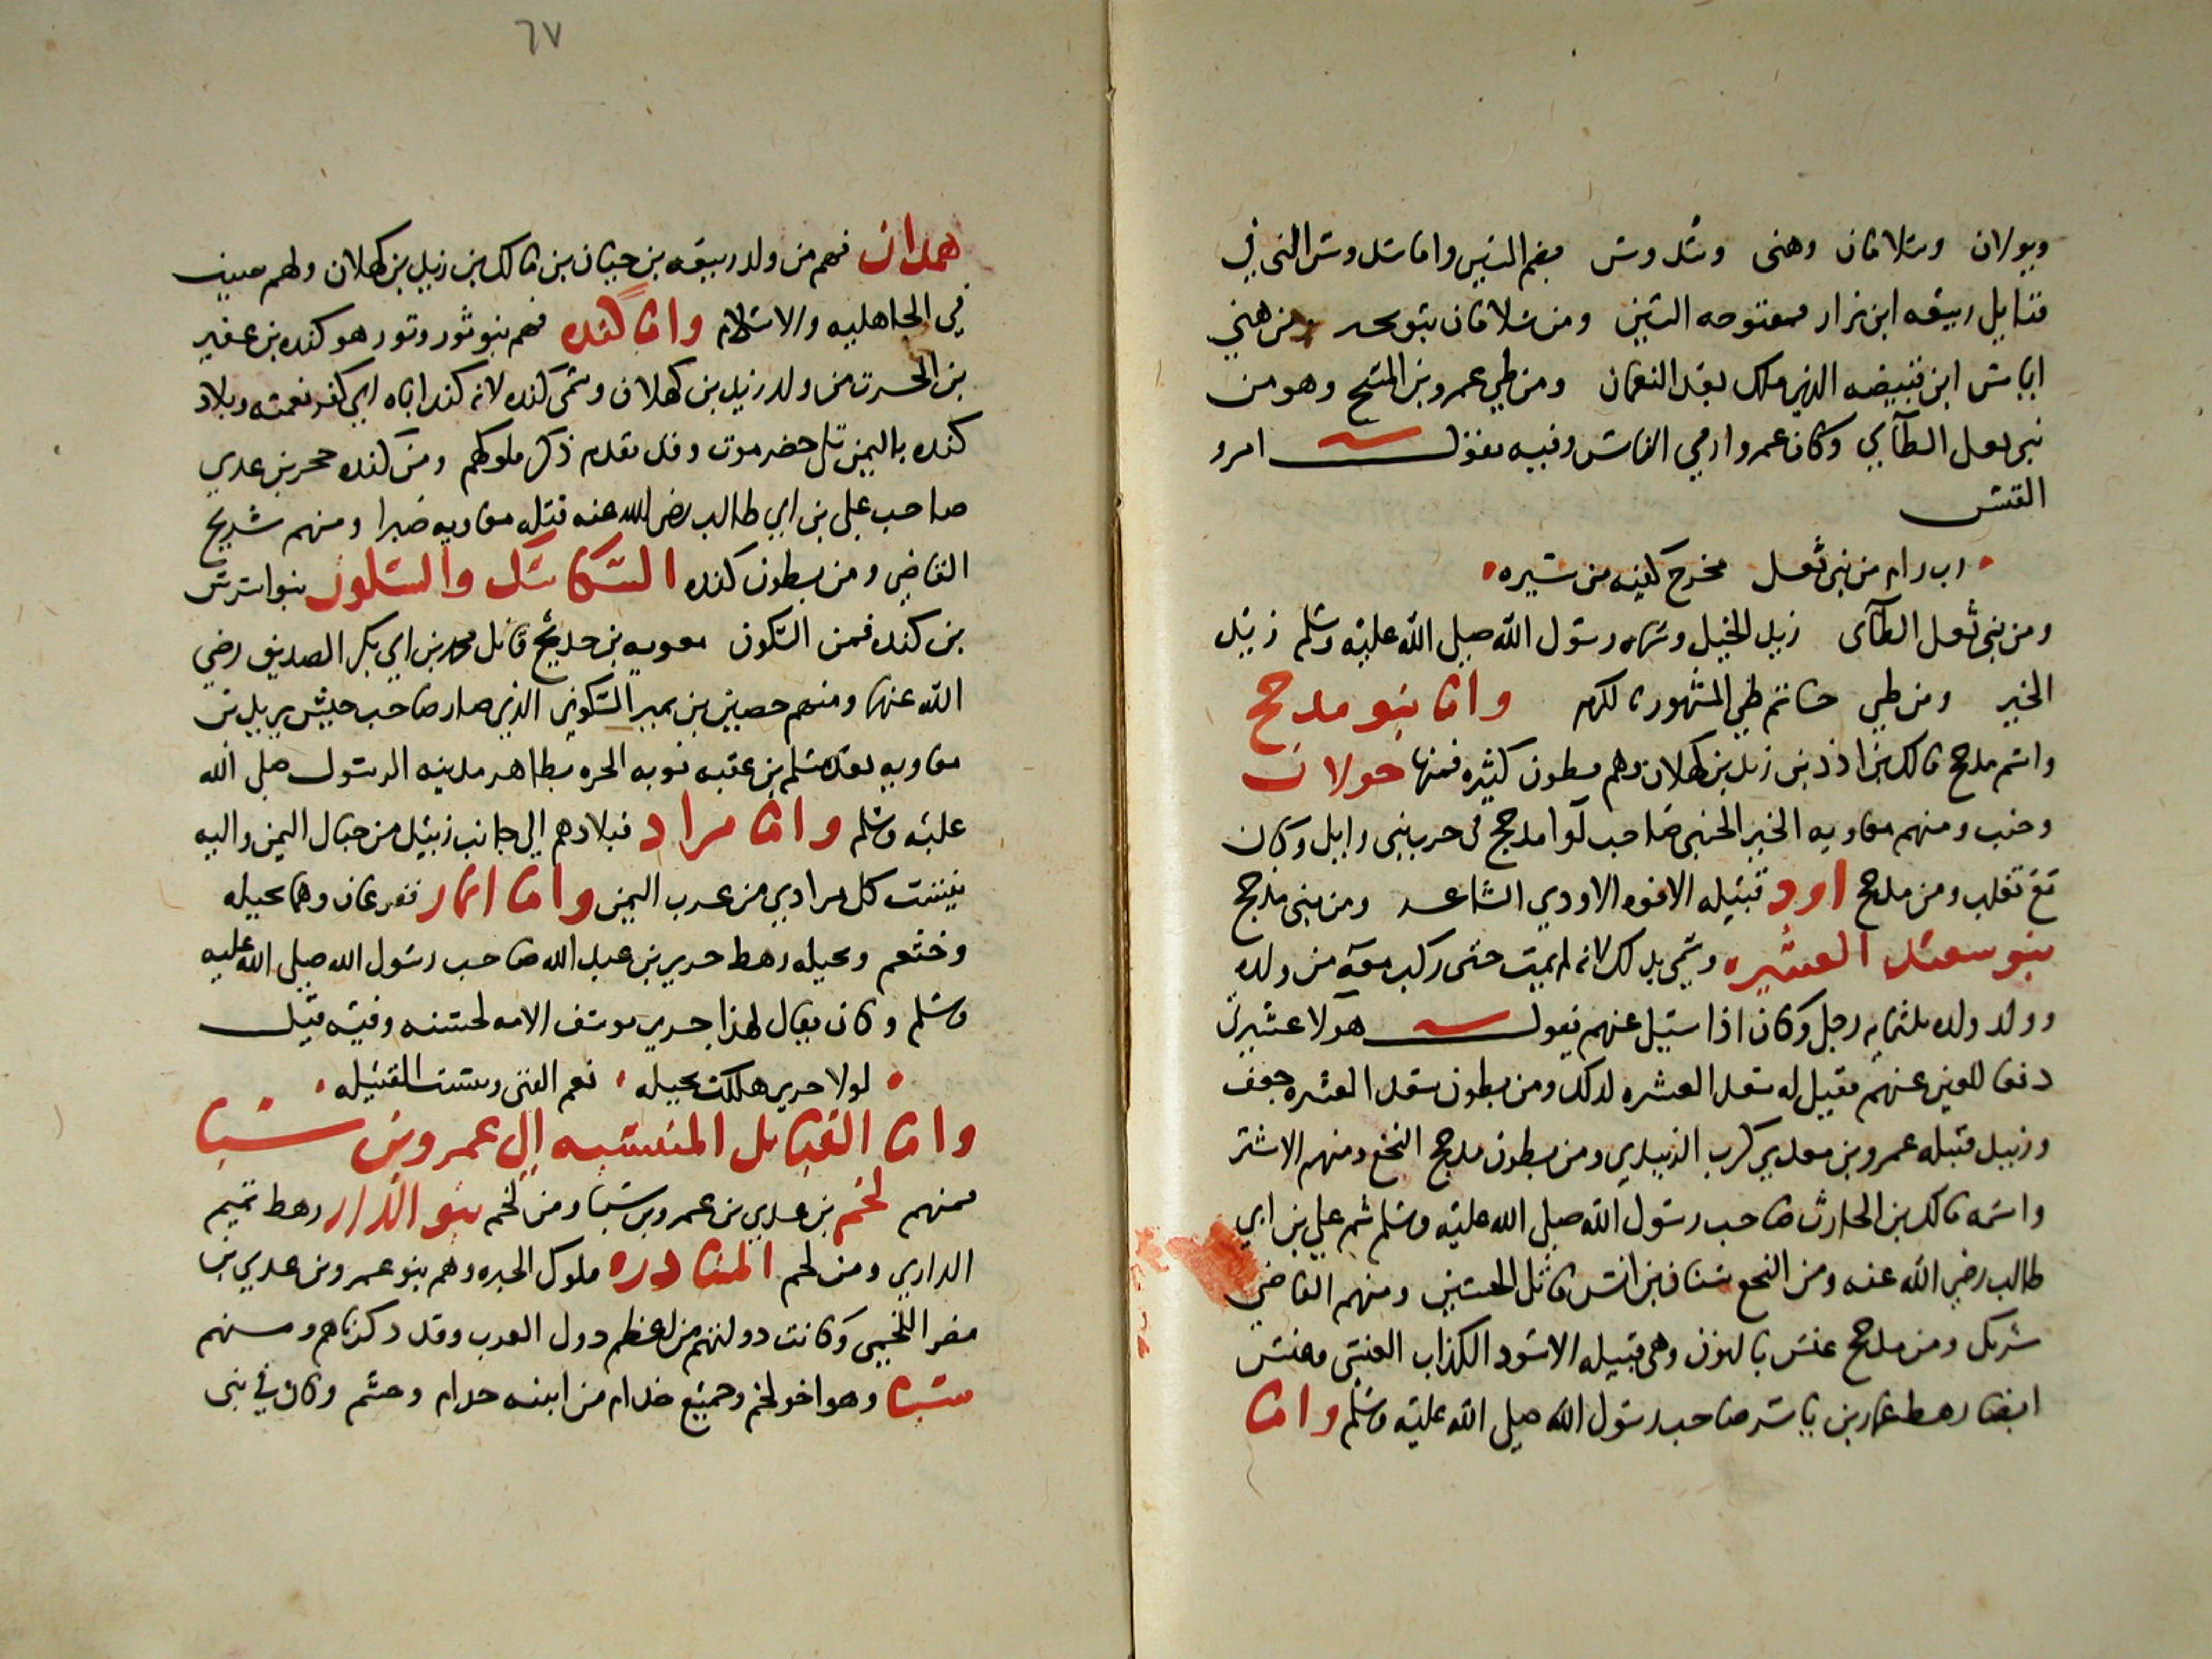 وبولان وسلامان وهنى وسدوس بضم السين واما سدوس التي في
قبايل ربيعه ابن نزار فمفتوحه السين ومن سلامان بنو بحتر ومن هني
اياس ابن قبيصه الذي ملك بعد النعمان ومن طي عمرو بن المسيح وهو من
بني ثعل الطآيي وكان عمرو ارمي الناس وفيه يقول امرو
القيس
رب رام من بني ثعل مخرج كفيه من ستره
ومن بني ثعل الطآى زيد الخيل وسماه رسول الله صلى الله عليه وسلم زيد
الخير ومن طي حاتم طي المشهور بالكرم واما بنو مدحج
واسم مدحج مالك بن ادد بن زيد بن كهلان وهم بطون كثيره فمنها خولان
وجنب ومنهم معاويه الخير الجنبي صاحب لوآ مدحج في حرب بني وايل وكان
مع تغلب ومن مدحج اود قبيله الافوه الاودي الشاعر ومن بني مدحج
بنو سعد العشيره وسمي بذلك لانه لم يمت حتى ركب معه من ولده
وولد ولده ثلثمايه رجل وكان اذا سيل عنهم يقول هولا عشيرتي
دفعا للعين عنهم فقيل له سعد العشيره لذلك ومن بطون سعد العشيره جعف
وزبيد قبيله عمرو بن معدي كرب الزبيدي ومن بطون مدحج النخع ومنهم الاشتر
واسمه مالك بن الحارث صاحب رسول الله صلى الله عليه وسلم ثم علي بن ابي
طالب رضي الله عنه ومن النخع سنان بن انس قاتل الحسين ومنهم القاضي
شريك ومن مدحج عنس بالنون وهي قبيله الاسود الكذاب العنسي وعنس
ايضا رهط عمار بن ياسر صاحب رسول الله صلى الله عليه وسلم واما
٦٧
همدان فهم من ولد ربيعه بن حيان بن مالك بن زيد بن كهلان ولهم صيت
في الجاهليه والاسلام واما كنده فهم بنو ثور وثور هو كنده بن عفير
بن الحرث من ولد زيد بن كهلان وسمى كنده لانه كند اباه اي كفر نعمته وبلاد
كنده باليمن تلي حضرموت وقد تقدم ذكر ملوكهم ومن كنده حجر بن عدي
صاحب علي بن ابي طالب رضي الله عنه قتله معاويه صبرا ومنهم شريح
القاضي ومن بطون كنده السكاسك والسكون بنو اشرس
بن كنده فمن السكون معويه بن حديج قاتل محمد بن ابي بكر الصديق رضي
الله عنهما ومنهم حصين بن نمير السكوني الذي صار صاحب جيش يزيد بن
معاويه بعد مسلم بن عقبه نوبه الحره بظاهر مدينه الرسول صلى الله
عليه وسلم واما مراد فبلادهم الي جانب زبيد من جبال اليمن واليه
ينسب كل مرادي من عرب اليمن واما انمار ففرعان وهما بجيله
وخثعم وبجيله رهط جرير بن عبد الله صاحب رسول الله صلى الله عليه
وسلم وكان يقال لهذا جرير يوسف الامه لحسنه وفيه قيل
لولا جرير هلكت بجيله نعم الفتى وبئست القبيله
واما القبايل المنتسبه الي عمرو بن سبا
فمنهم لخم بن عدي بن عمرو بن سبا ومن لخم بنو الدار رهط تميم
الداري ومن لخم المناذره ملوك الحيره وهم بنو عمرو بن عدي بن
نصر اللخمي وكانت دولتهم من اعظم دول العرب وقد ذكرناهم ومنهم
سبا وهو اخو لخم وجميع جذام من ابنيه حرام وحشم وكان في بني